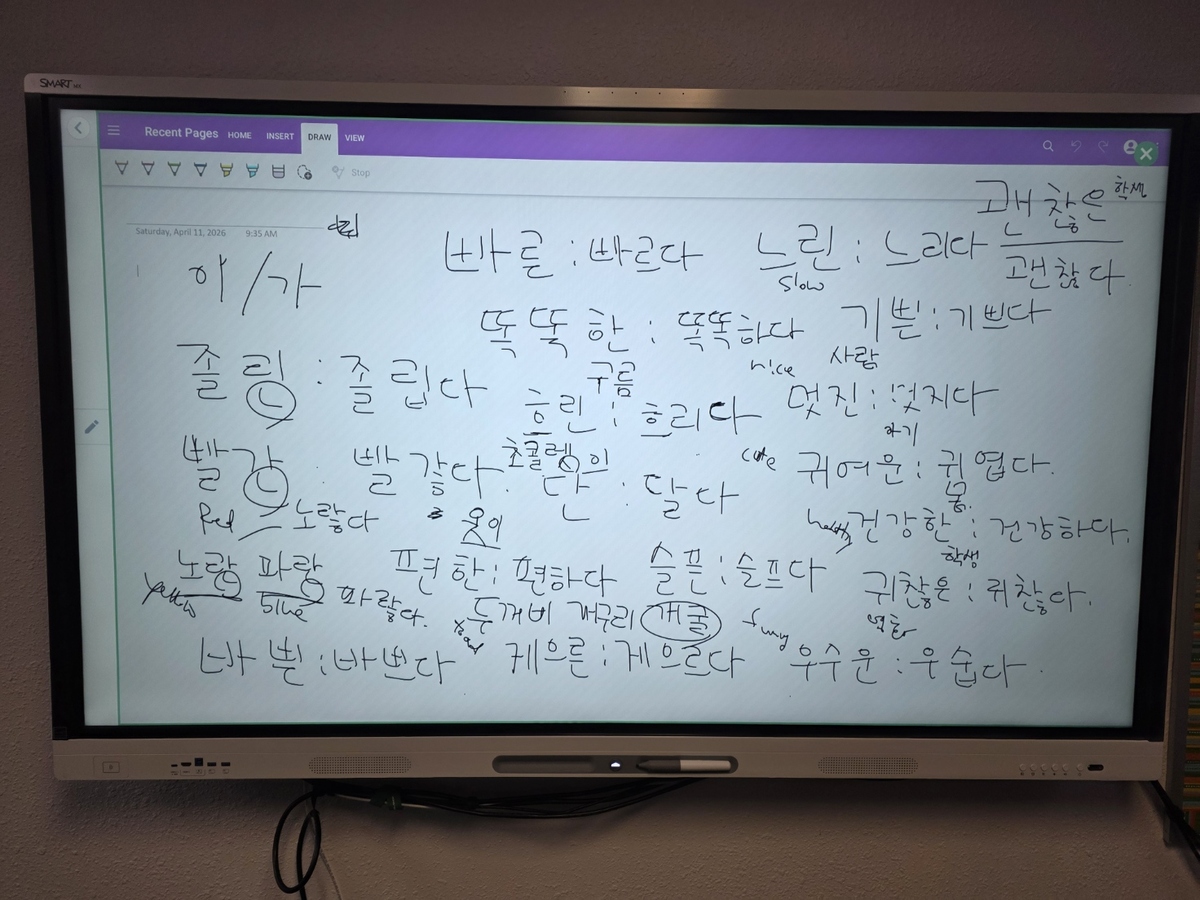 SMART
Recent Pages HOME INSERT DRAW VIEW
Stop
Saturday, April 11, 2026 9:35 AM
이/가
빠른 : 빠르다
느린 : 느리다
slow
괜찮은 학생
괜찮다.
똑똑한 : 똑똑하다
기쁜 : 기쁘다
졸린 : 졸립다
구름
흐린 : 흐리다
nice 사람
멋진 : 멋지다
빨간 : 빨갛다.
초콜렛이
단 : 달다
아기
cute 귀여운 : 귑엽다.
Red 노랗다
옷이
몸
건강한 : 건강하다.
노란 파란
yellow blue 파랗다.
편한 : 편하다
슬픈 : 슬프다
학생
귀찮은 : 귀찮다.
두꺼비 개구리 개굴
바쁜 : 바쁘다
게으른 : 게으르다
funny 우수운 : 우숩다.